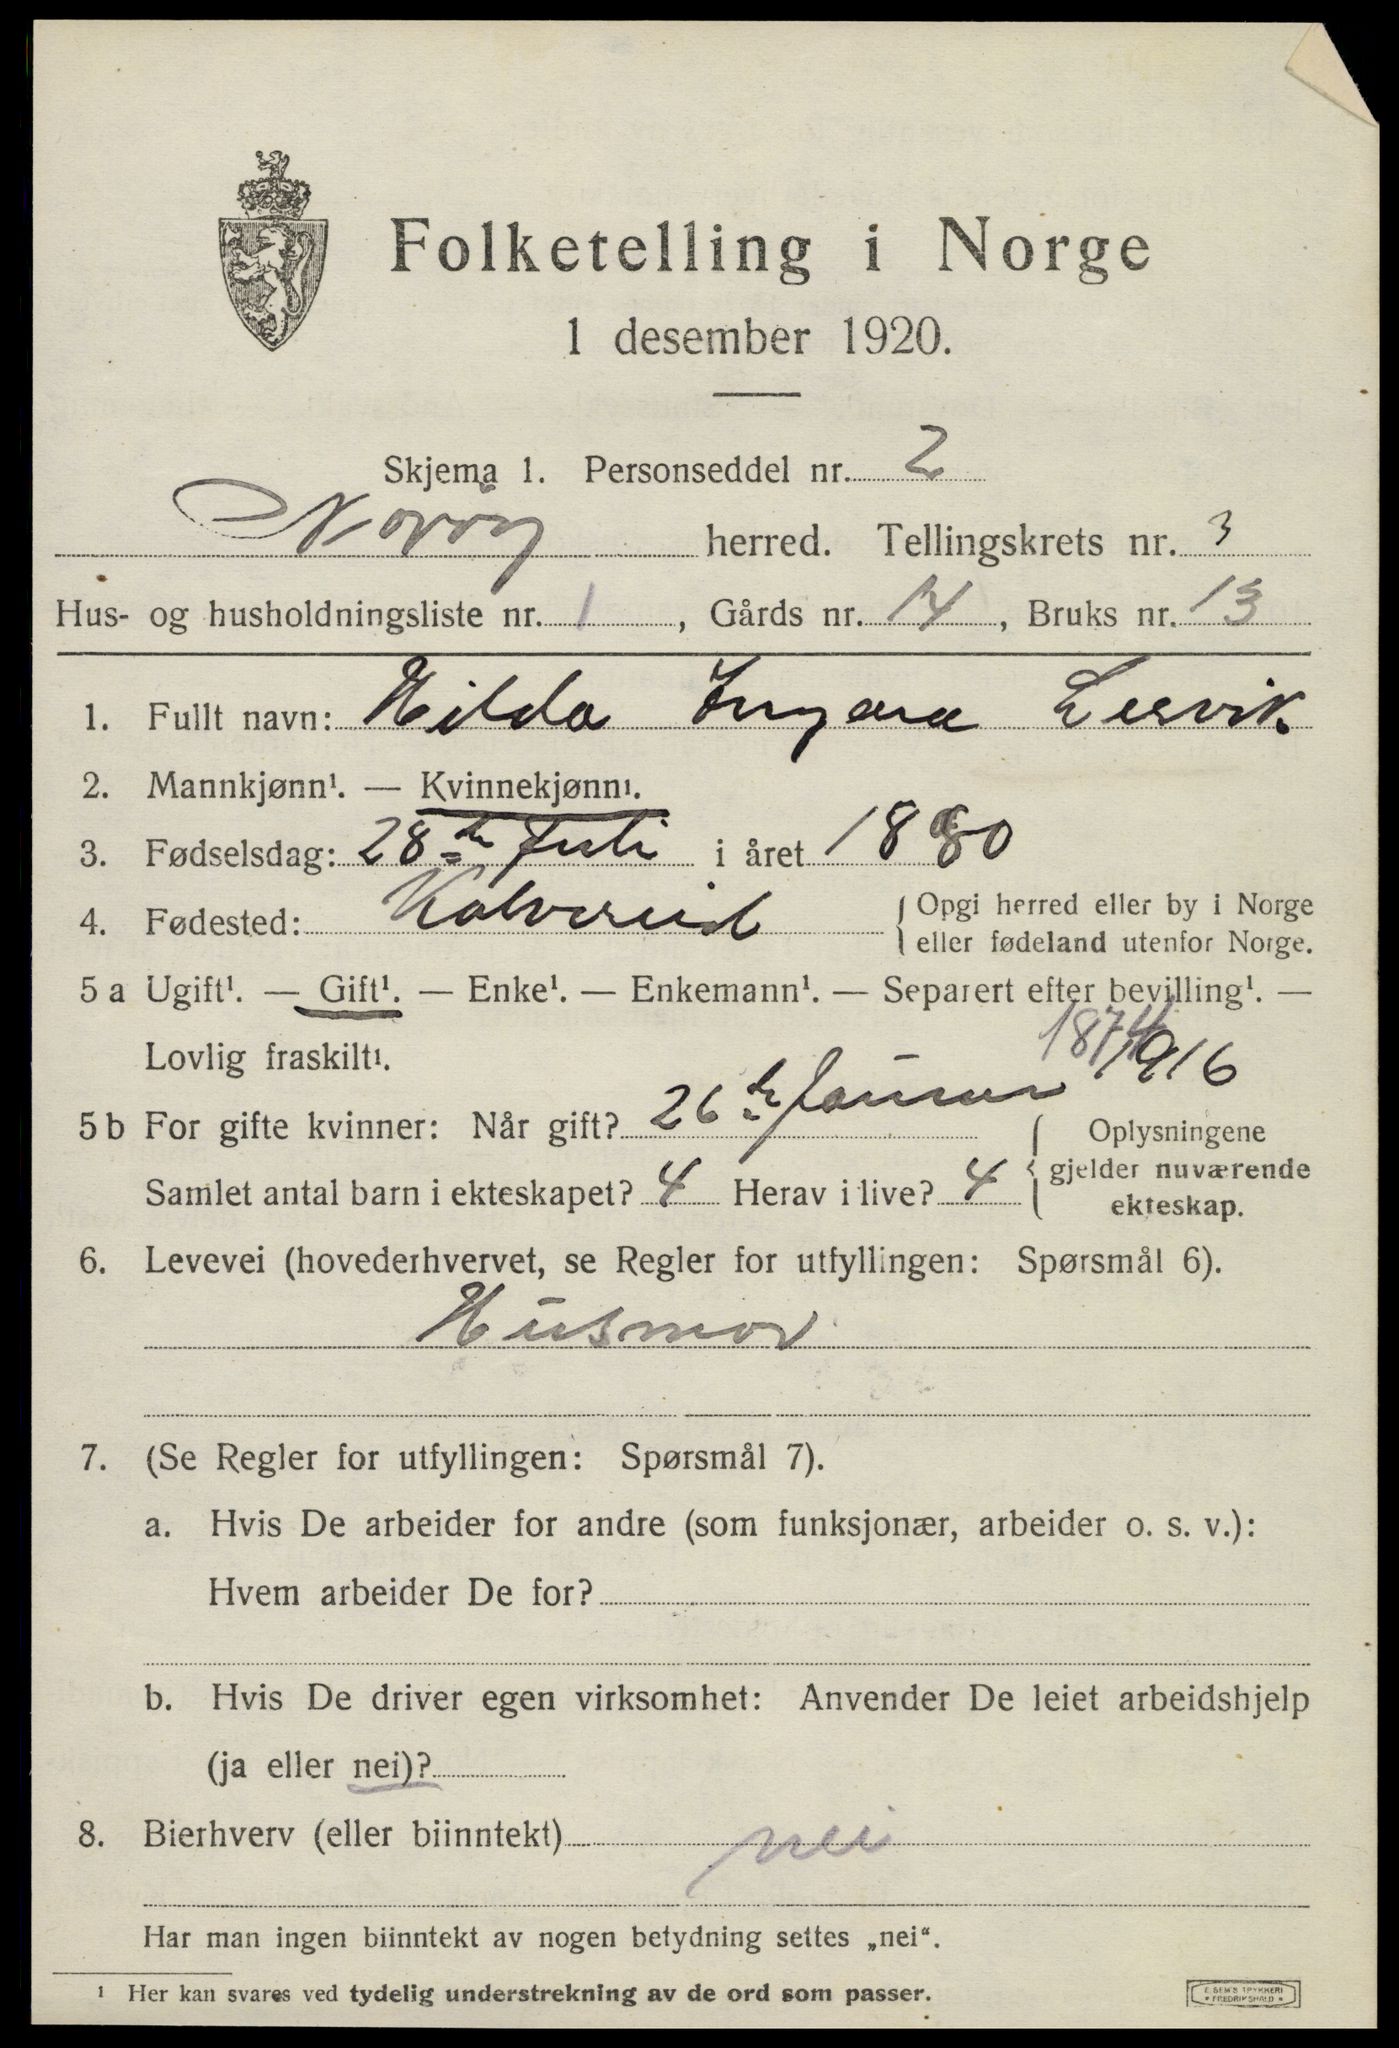 Folketelling i Norge
1 desember 1920.
Skjema 1. Personseddel nr. 2
Nærøy herred. Tellingskrets nr. 3
Hus- og husholdningsliste nr. 1, Gårds nr. 14, Bruks nr. 13
1. Fullt navn: Hilda Lervik
2. Mannkjønn¹. — Kvinnekjønn¹.
3. Fødselsdag: 28de Juli i året 1880
4. Fødested: Kolvereid { Opgi herred eller by i Norge
eller fødeland utenfor Norge.
5 a Ugift¹. — Gift¹. — Enke¹. — Enkemann¹. — Separert efter bevilling¹. —
Lovlig fraskilt¹. 1874
5 b For gifte kvinner: Når gift? 26de Januar 1916 { Oplysningene
gjelder nuværende
ekteskap.
Samlet antal barn i ekteskapet? 4 Herav i live? 4
6. Levevei (hovederhvervet, se Regler for utfyllingen: Spørsmål 6).
Husmor
7. (Se Regler for utfyllingen: Spørsmål 7).
a. Hvis De arbeider for andre (som funksjonær, arbeider o. s. v.):
Hvem arbeider De for?
b. Hvis De driver egen virksomhet: Anvender De leiet arbeidshjelp
(ja eller nei)?
8. Bierhverv (eller biinntekt) nei
Har man ingen biinntekt av nogen betydning settes „nei“.
¹ Her kan svares ved tydelig understrekning av de ord som passer.
E. SEM'S TRYKKERI
• FREDRIKSHALD •